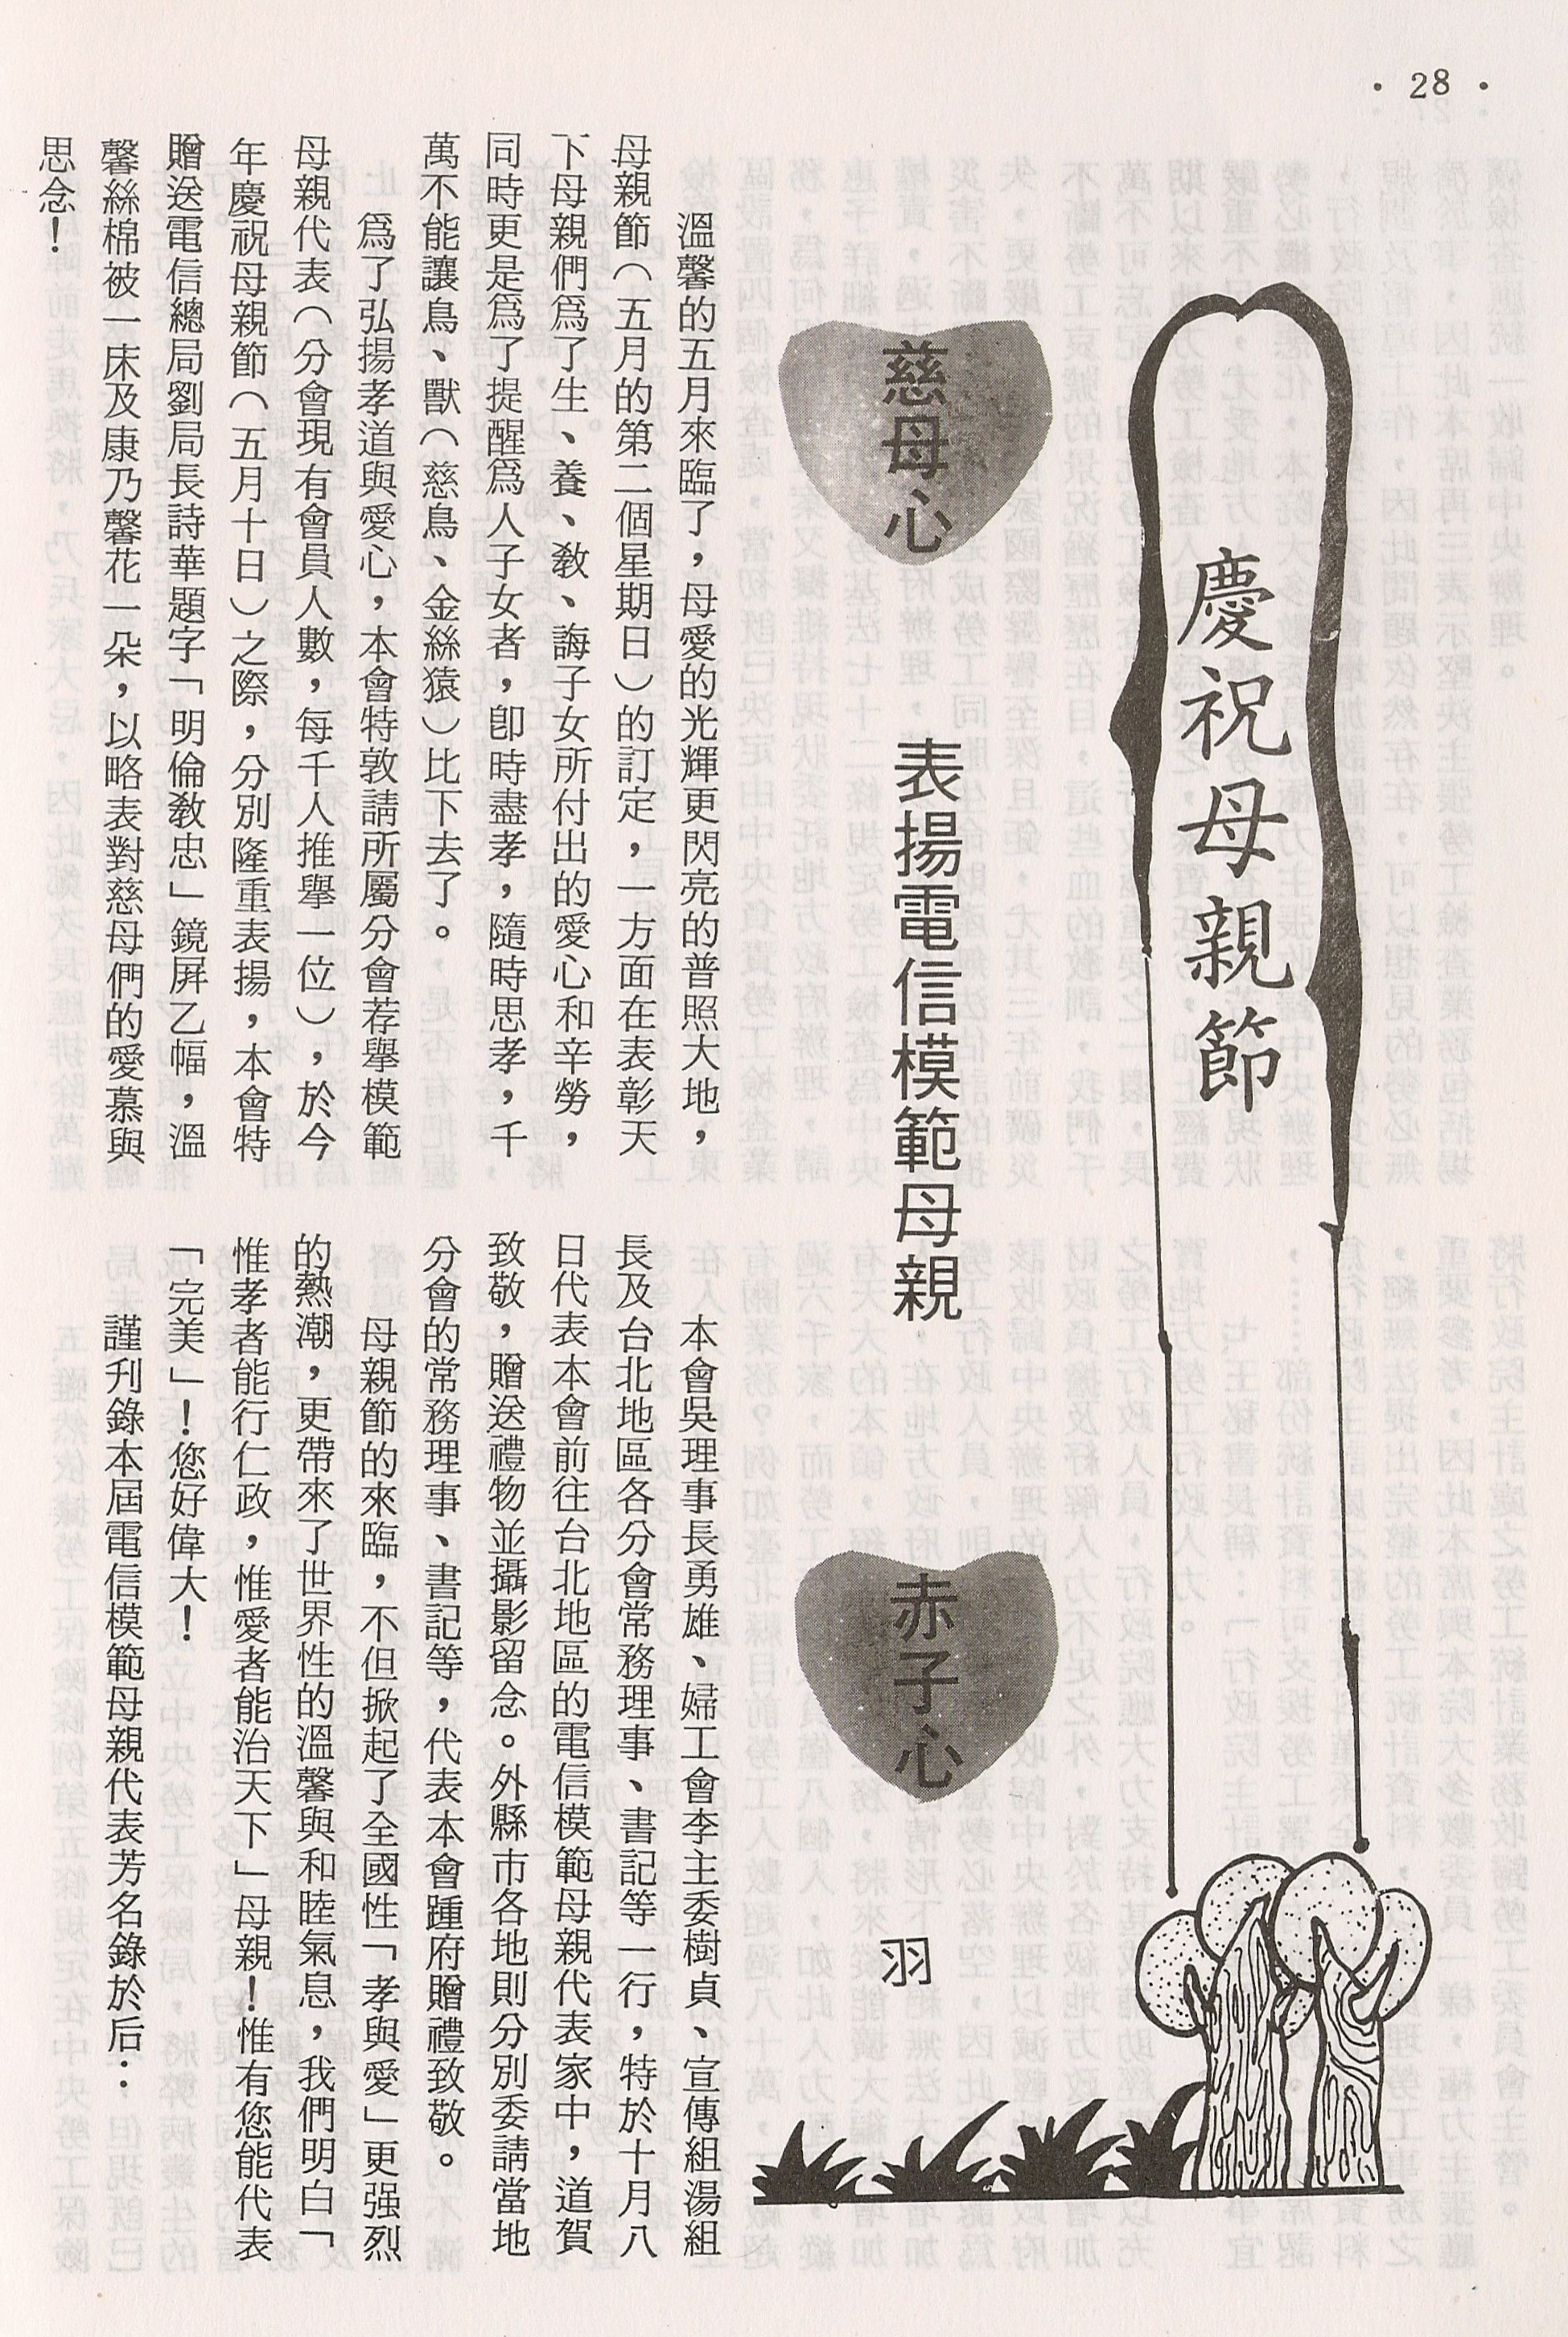 · 28 ·
慶祝母親節
慈母心
表揚電信模範母親
赤子心
羽
溫馨的五月來臨了，母愛的光輝更閃亮的普照大地，
母親節（五月的第二個星期日）的訂定，一方面在表彰天
下母親們爲了生、養、敎、誨子女所付出的愛心和辛勞，
同時更是爲了提醒爲人子女者，卽時盡孝，隨時思孝，千
萬不能讓鳥、獸（慈鳥、金絲猿）比下去了。
爲了弘揚孝道與愛心，本會特敦請所屬分會荐舉模範
母親代表（分會現有會員人數，每千人推舉一位），於今
年慶祝母親節（五月十日）之際，分別隆重表揚，本會特
贈送電信總局劉局長詩華題字「明倫敎忠」鏡屛乙幅，溫
馨絲棉被一床及康乃馨花一朵，以略表對慈母們的愛慕與
思念！
本會吳理事長勇雄、婦工會李主委樹貞、宣傳組湯組
長及台北地區各分會常務理事、書記等一行，特於十月八
日代表本會前往台北地區的電信模範母親代表家中，道賀
致敬，贈送禮物並攝影留念。外縣市各地則分別委請當地
分會的常務理事、書記等，代表本會踵府贈禮致敬。
母親節的來臨，不但掀起了全國性「孝與愛」更强烈
的熱潮，更帶來了世界性的溫馨與和睦氣息，我們明白「
惟孝者能行仁政，惟愛者能治天下」母親！惟有您能代表
「完美」！您好偉大！
謹刋錄本屆電信模範母親代表芳名錄於后：